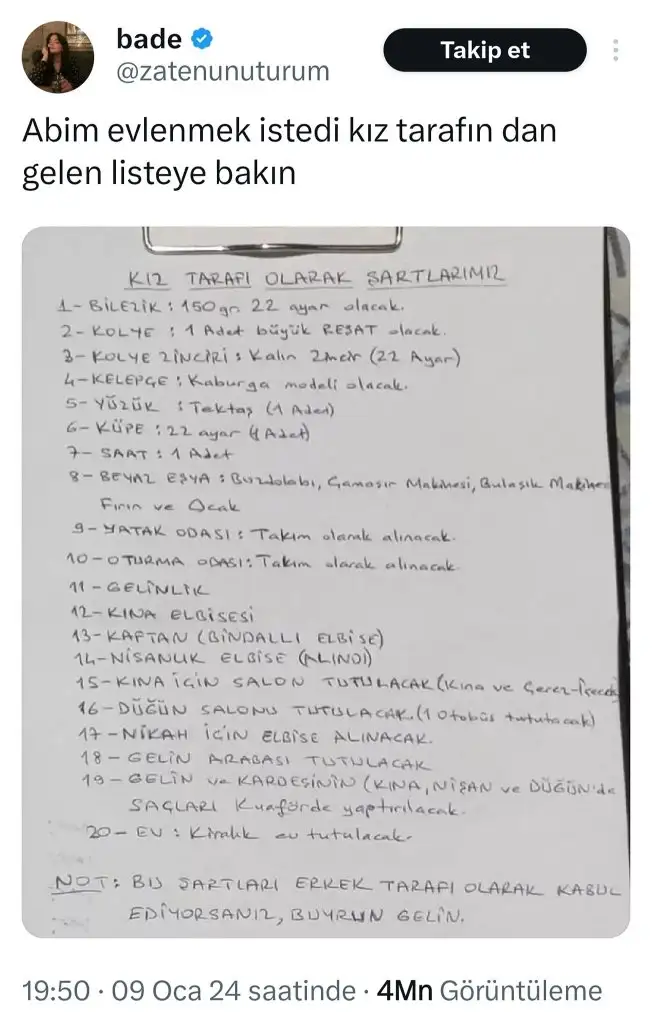 bade
Takip et
@zatenunuturum
Abim evlenmek istedi kız tarafın dan
gelen listeye bakın
KIZ TARAFI OLARAK ŞARTLARIMIZ
1- BİLEZİK : 150 gr. 22 ayar olacak.
2- KOLYE : 1 Adet büyük REŞAT olacak.
3- KOLYE ZİNCİRİ : Kalın Zincir (22 Ayar)
4- KELEPÇE : Kaburga modeli olacak.
5- YÜZÜK : Tektaş (1 Adet)
6- KÜPE : 22 ayar (1 Adet)
7- SAAT : 1 Adet
8- BEYAZ EŞYA : Buzdolabı, Çamaşır Makinesi, Bulaşık Makines
Fırın ve Ocak
9- YATAK ODASI : Takım olarak alınacak.
10- OTURMA ODASI : Takım olarak alınacak
11- GELİNLİK
12- KINA ELBİSESİ
13- KAFTAN (BİNDALLI ELBİSE)
14- NİŞANLIK ELBİSE (ALINDI)
15- KINA İÇİN SALON TUTULACAK (Kına ve Çerez-İçecek
16- DÜĞÜN SALONU TUTULACAK. (1 Otobüs tutulacak)
17- NİKAH İÇİN ELBİSE ALINACAK.
18- GELİN ARABASI TUTULACAK
19- GELİN ve KARDEŞİNİN (KINA, NİŞAN ve DÜĞÜN'de
SAÇLARI Kuaförde yaptırılacak.
20- EV : Kiralık ev tutulacak.
NOT : BU ŞARTLARI ERKEK TARAFI OLARAK KABUL
EDİYORSANIZ, BUYRUN GELİN.
19:50 · 09 Oca 24 saatinde · 4Mn Görüntüleme